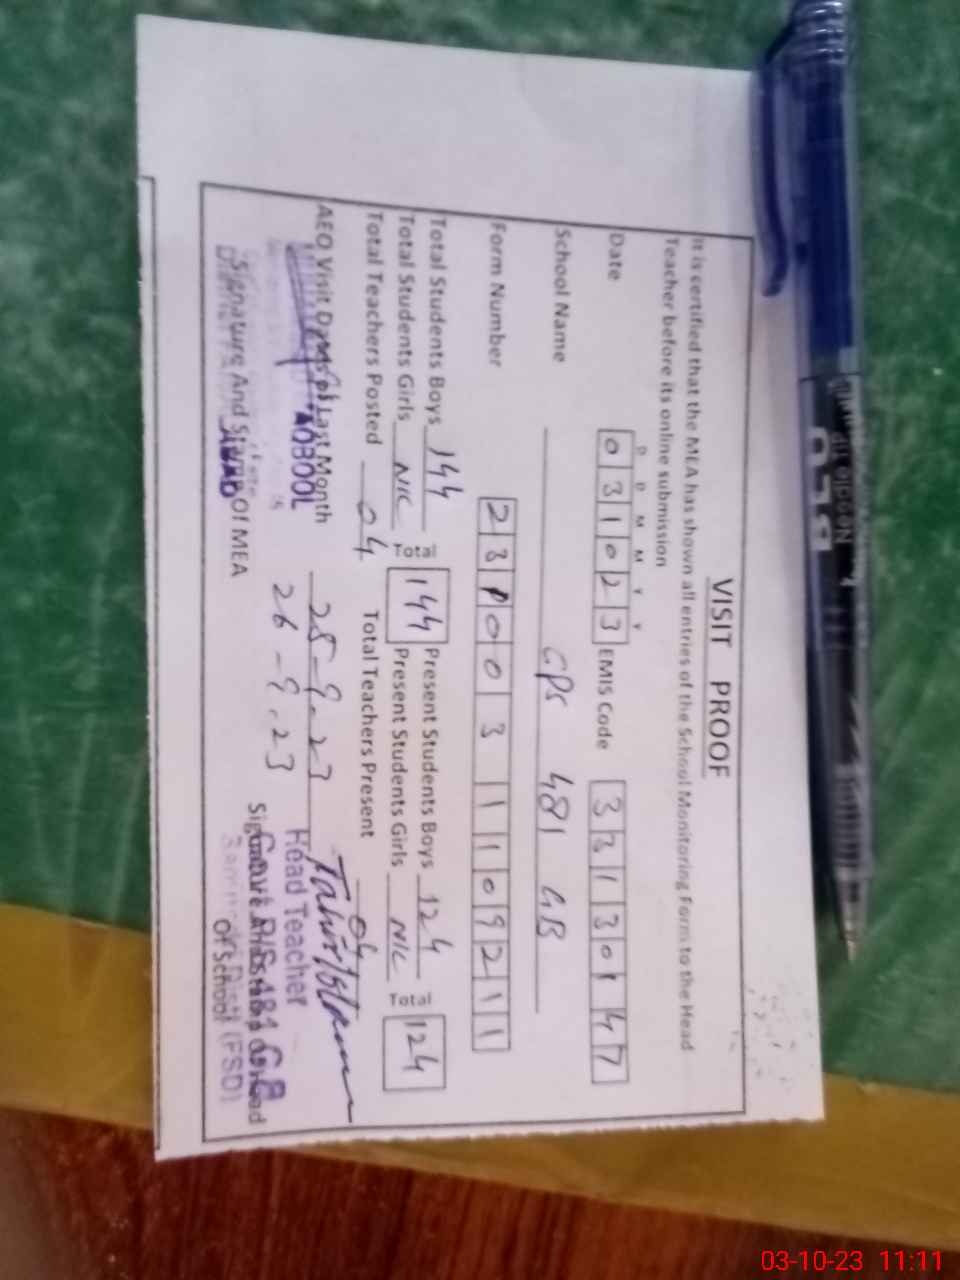 VISIT PROOF
It is certified that the MEA has shown all entries of the School Monitoring Form to the Head
Teacher before its online submission
D D M M Y Y
Date 031023 EMIS Code 33130147
School Name GPS 481 GB
Form Number
Total Students Boys 144 Total 144 Present Students Boys 124 Total 124
Total Students Girls NIL Present Students Girls NIL
Total Teachers Posted 04 Total Teachers Present 04
AEO Visit Days of Last Month 25-9-23
26-9-23
Signature And Stamp Of MEA
Head Teacher
Of School
(FSD)
03-10-23 11:11